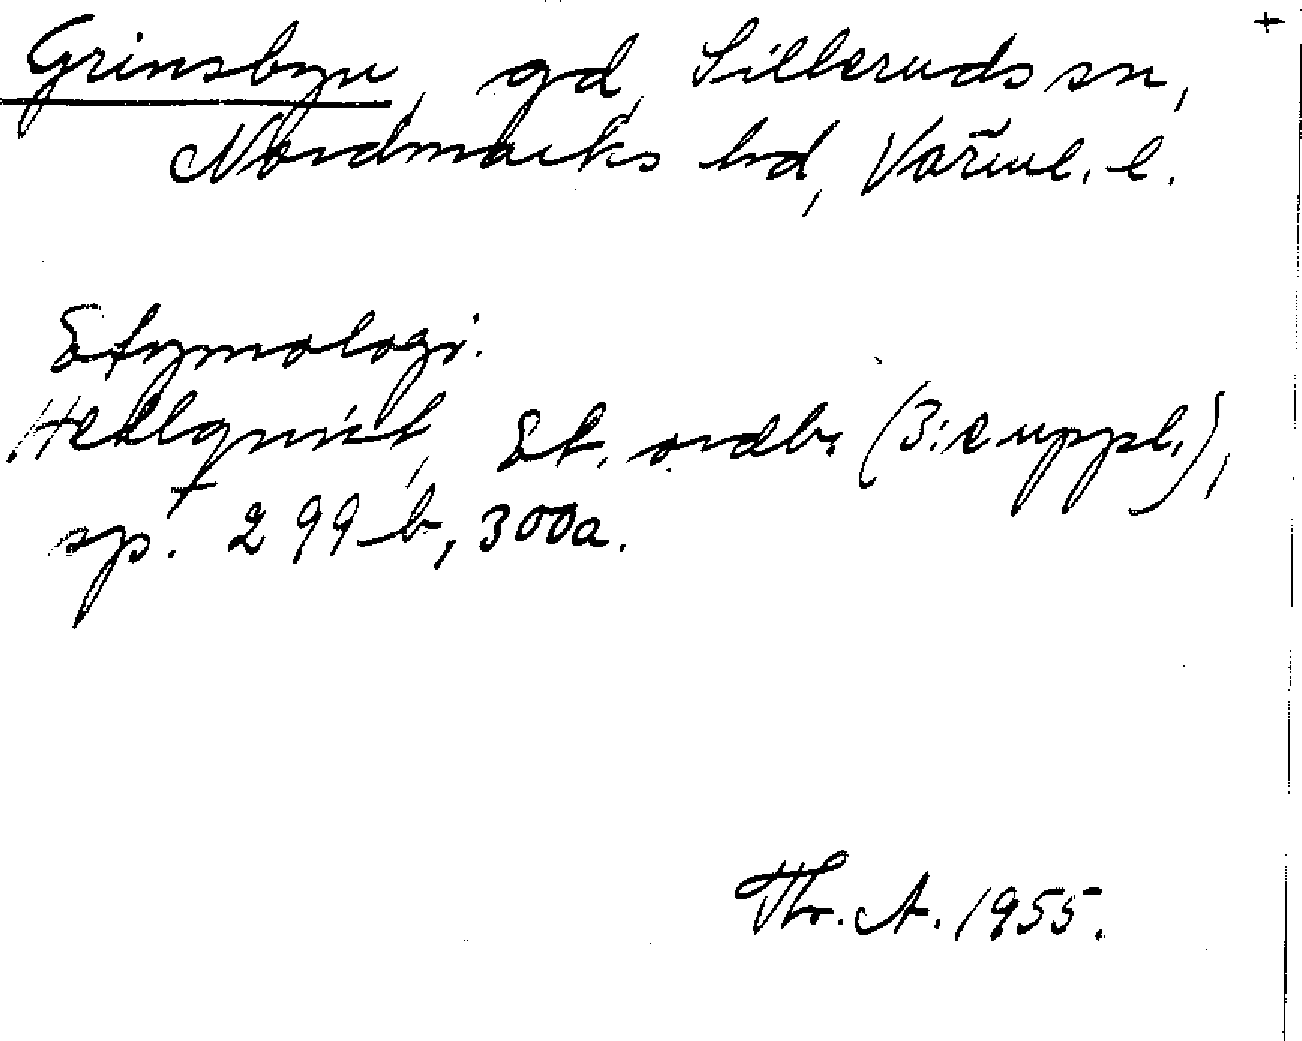 +
Grinsbyn, gd, Silleruds sn,
Nordmarks hd, Värml. l.
Etymologi.
Hellquist, Et. ordb. (3:e uppl.),
sp. 299 b, 300a.
Thr. A. 1955.